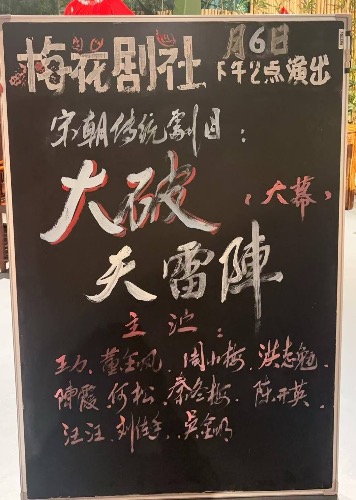 梅花剧社
月6日
下午2点演出
宋朝传统劇目：
大破（大幕）
天雷陣
主演：
王万、董金凤、周小梅、洪志勉
陳霞、何松、秦冬梅、陈开英、
汪汪、刘佳、吴金明